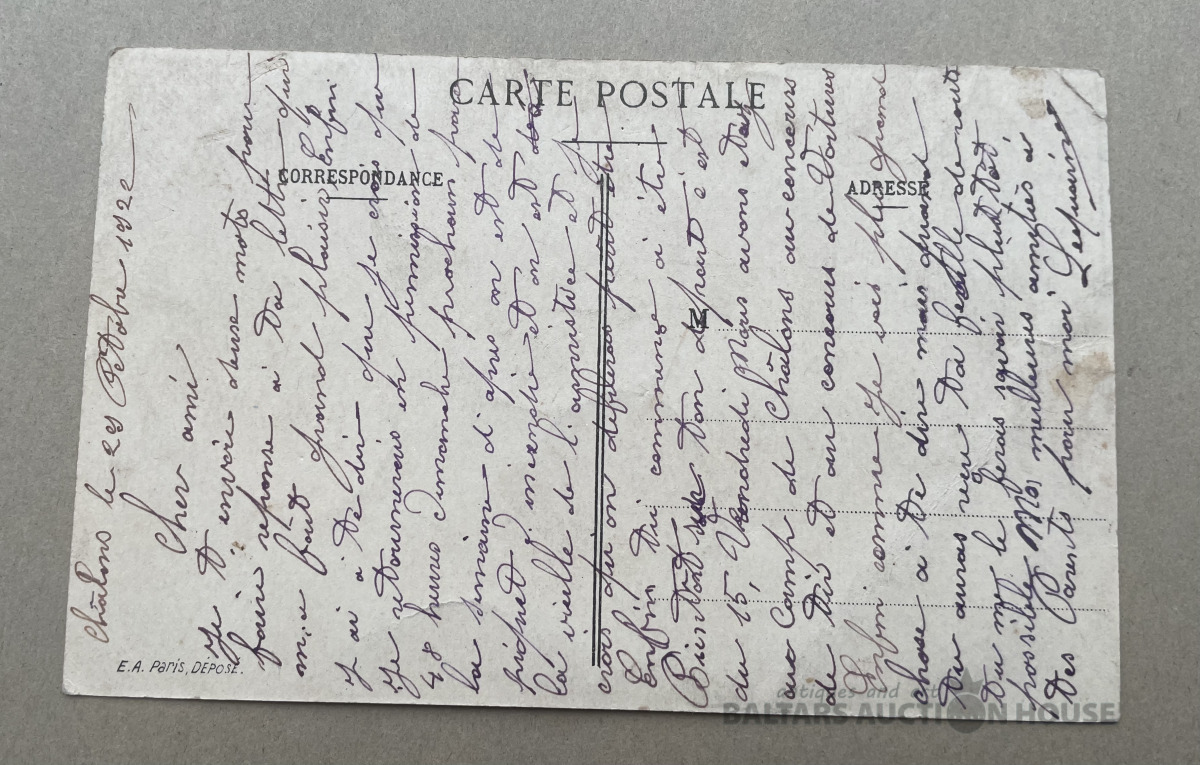 CARTE POSTALE
CORRESPONDANCE
ADRESSE
M
E.A. Paris, DÉPOSÉ.
Châlons le 29 Octobre 1922
Cher ami
Je t envoie deux mots pour
faire reponse a ta lettre qui
m,a fait grand plaisir Enfin
J ai a te dire que je crois que
Je retournerais en permission de
48 heures Dimanche prochain
la semaine d apres on est de
piquet d incendie et on est
la vieille de l'appistice et
crois qu on defileras peut etre
Enfin tu commence a être
Bientôt sur ton depart c est
du 15, Vendredi Mous avons etay
au Camp de Châlons au concours
de tir et au concours de Voitures
Enfin comme Je vois plus grand
chose a te dire mais quand
Tu auras reçu ta feuille de route
Tu me le feras savoir plutot
possible Mes meilleures amitiés a
tes Parents pour moi
antiques and art
BALTARS AUCTION HOUSE